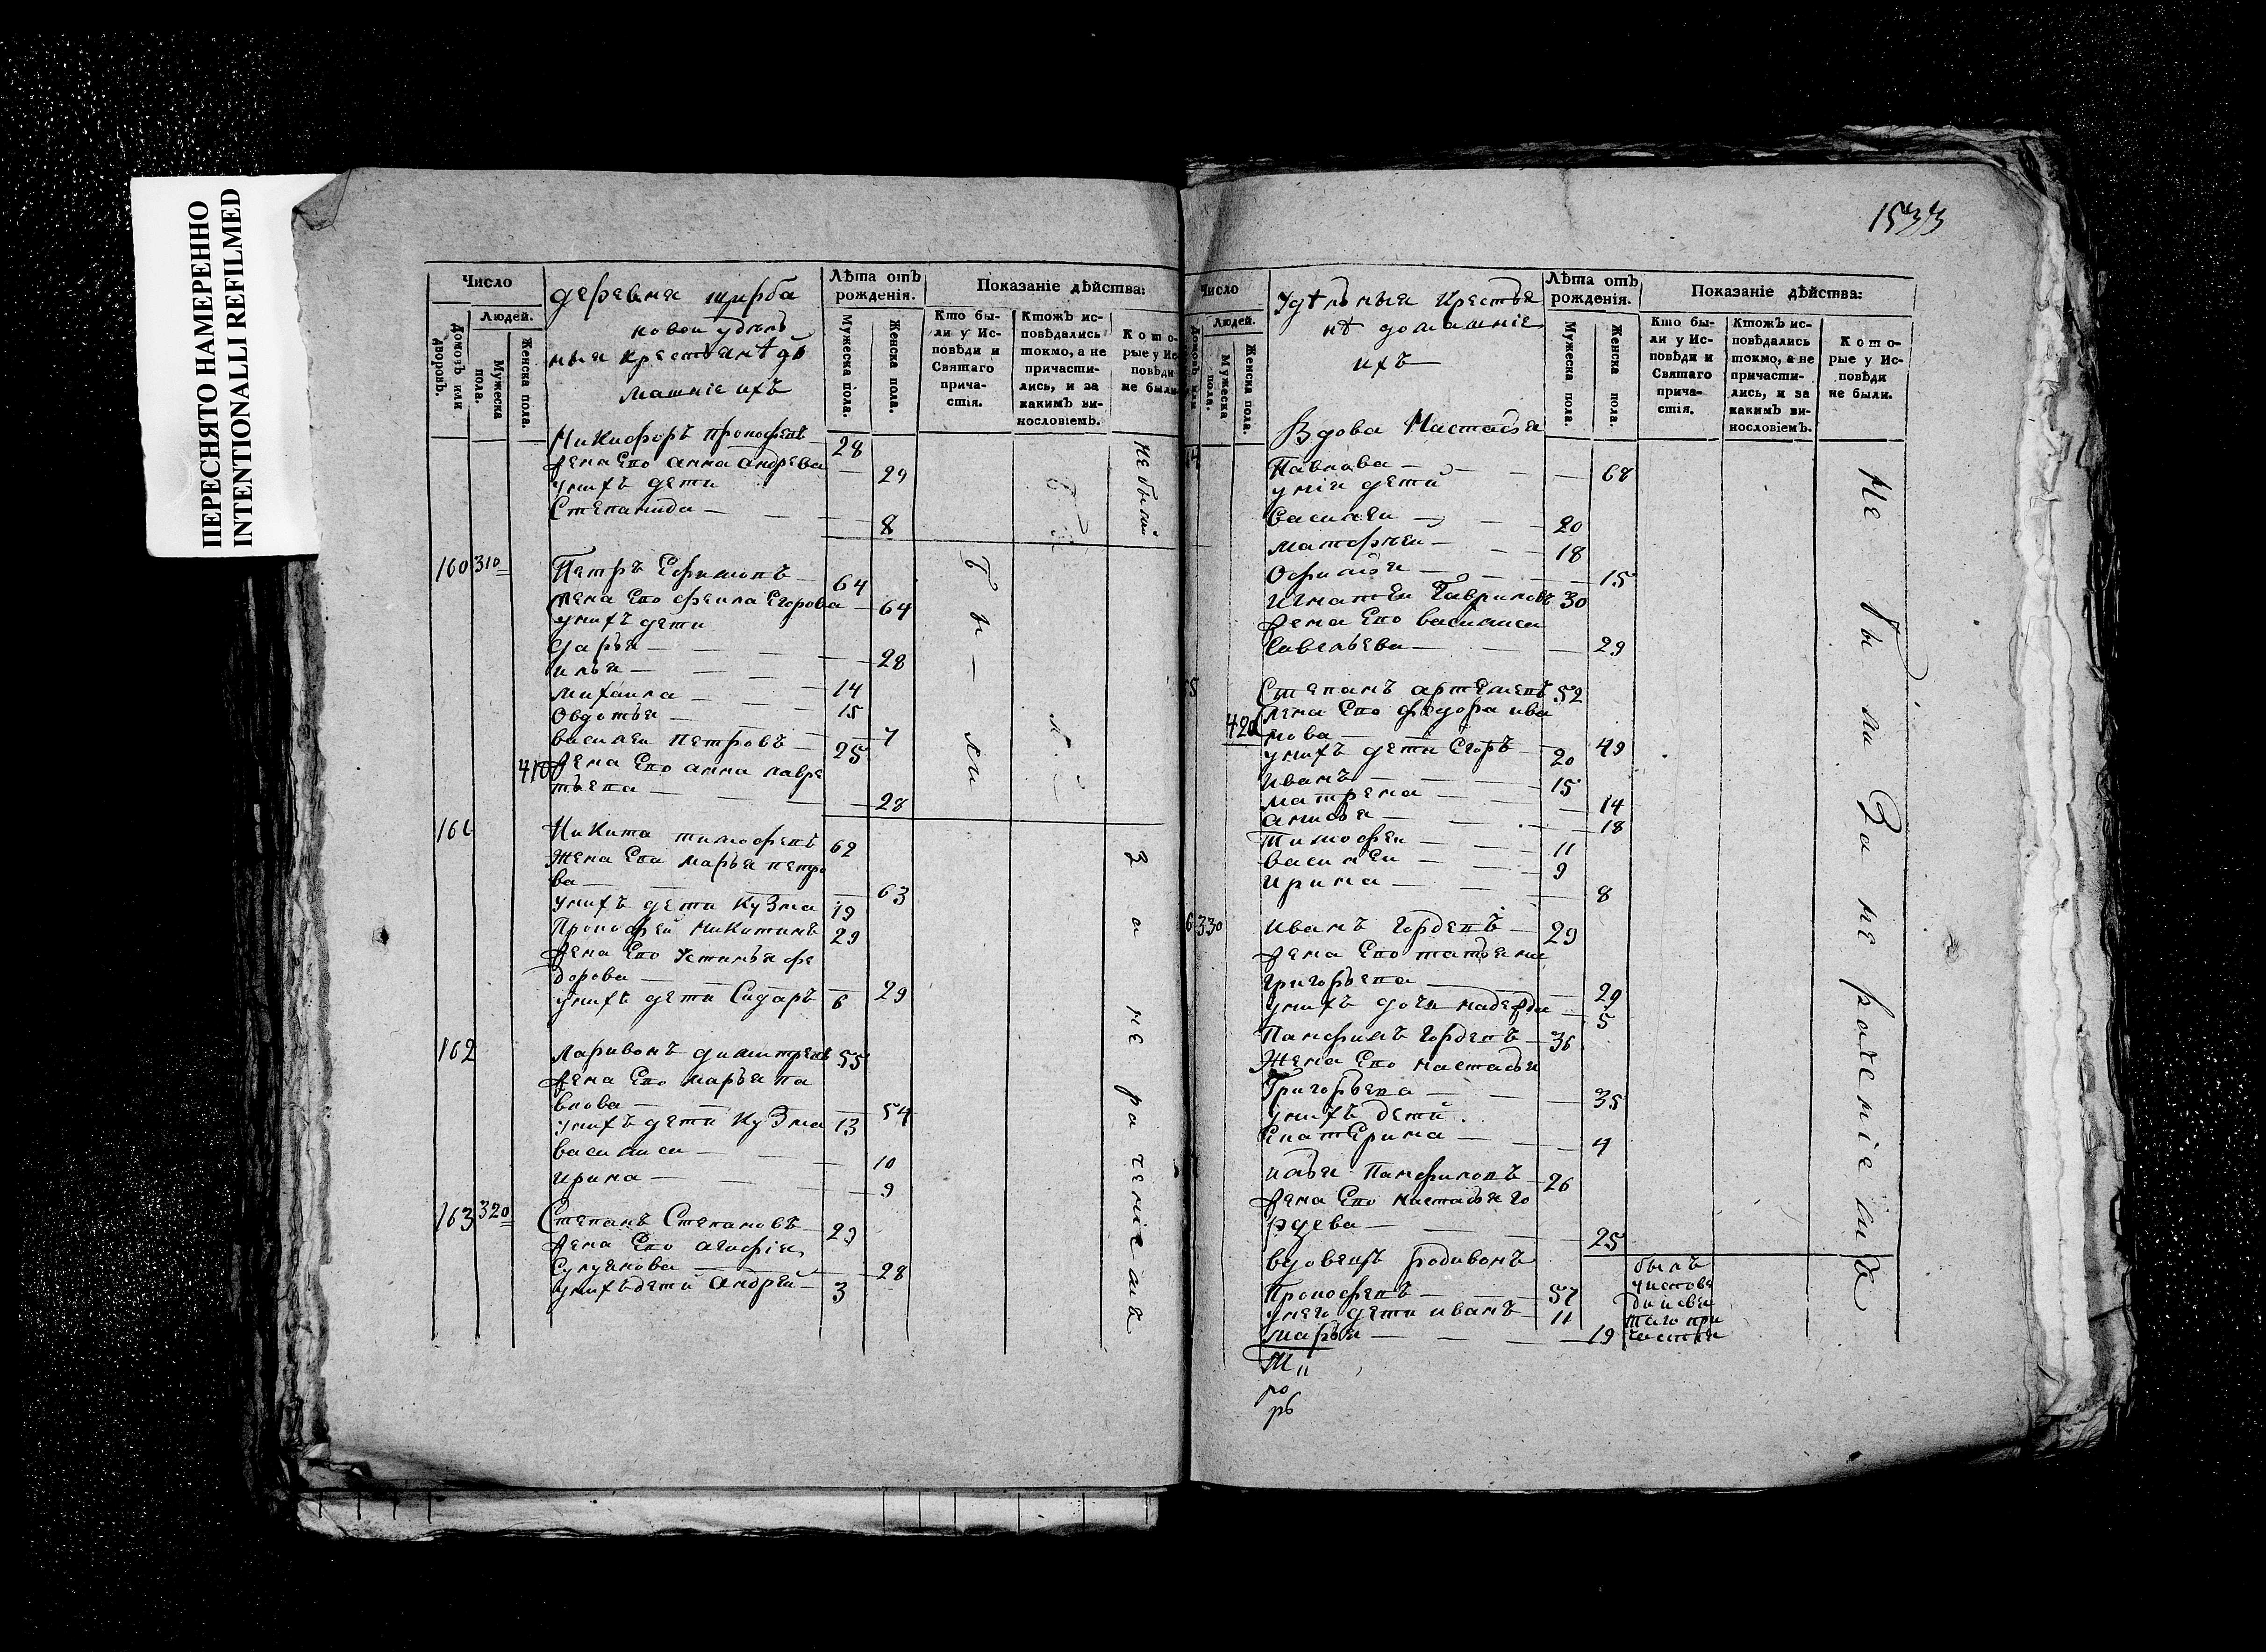 ПЕРЕСНЯТО НАМЕРЕННО
INTENTIONALLI REFILMED
Число
Людей.
Домовъ или дворовъ.
Мужеска пола.
Женска пола.
деревня щерба
новои удѣль
ныя крестьянѣ до
машніе ихъ
Лѣта отъ рожденія.
Мужеска пола.
Женска пола.
Показаніе дѣйства:
Кто бы-
ли у Ис-
повѣди и
Святаго
прича-
стія.
Ктожъ ис-
повѣдались
токмо, а не
причасти-
лись, и за
какимъ ви-
нословіемъ.
Кото-
рые у Ис-
повѣди
не были.
Никифоръ Прокофевъ 28
жена Его анна андрева 29
унихъ дети
Степанида 8
не были
160 310 Петръ Ефимовъ 64
жена Его феила Егорова 64
унихъ дети
Дарья 28
илья 14
михаила 15
Овдотья 7
василеи Петровъ 25
410 жена Его анна лавре
тьева 28
бы-ли
161 Никита тимофевъ 62
Жена Его марья петро
ва 63
унихъ дети Кузма 19
Прокофеи Никитинъ 29
жена Его Устинья фе
дорова 29
унихъ дети Сидаръ 6
162 ларивонъ дмитревъ 55
жена Его марья па
влова 54
унихъ дети Кузма 13
василиса 10
ирина 9
163 320 Степанъ Степановъ 29
жена Его агафія
28
унихъ дети андреи 3
За не рачение ихъ
1533
Число
Людей.
Мужеска пола.
Женска пола.
Удѣльныя Крестья
нѣ домашніе
ихъ
Лѣта отъ рожденія.
Мужеска пола.
Женска пола.
Показаніе дѣйства:
Кто бы-
ли у Ис-
повѣди и
Святаго
прича-
стія.
Ктожъ ис-
повѣдались
токмо, а не
причасти-
лись, и за
какимъ ви-
нословіемъ.
Кото-
рые у Ис-
повѣди
не были.
Вдова Настасья
Павлова 68
унія дети
Василеи 20
матфеи 18
Офимья 15
Игнатеи Гавриловъ 30
жена Его василиса
Савельева 29
Степанъ артемевъ 52
420 жена Его федора ива
нова 49
унихъ дети Егоръ 20
Иванъ 15
матрена 14
анисья 18
Тимофеи 11
василеи 9
Ирина 8
330 Иванъ Гордевъ 29
жена Его татьяна
Григорьева 29
унихъ дочь надежда 5
Панфилъ Гордевъ 36
Жена Его настасья
Григорьева 35
унихъ дети
Екатерина 4
илья Панфиловъ 26
жена Его настасья го
рдева 25
Не были За не рачение ихъ
вдовецъ Родивонъ
Прокофевъ 57
унего дети иванъ 11
марья 19
былъ
уиспове
ди исвя
таго при
частия